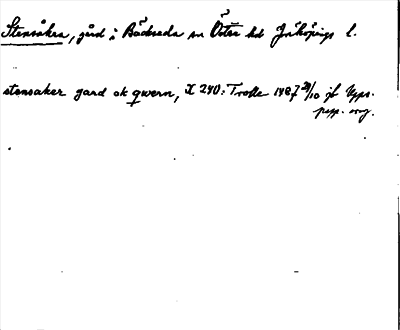 Stensåkra, gård i Bäckseda sn Östra hd Jönköpings l.
stensaker gard ok qwern, X 240: Trolle 1487 29/10 jb Upps.
papp. org.